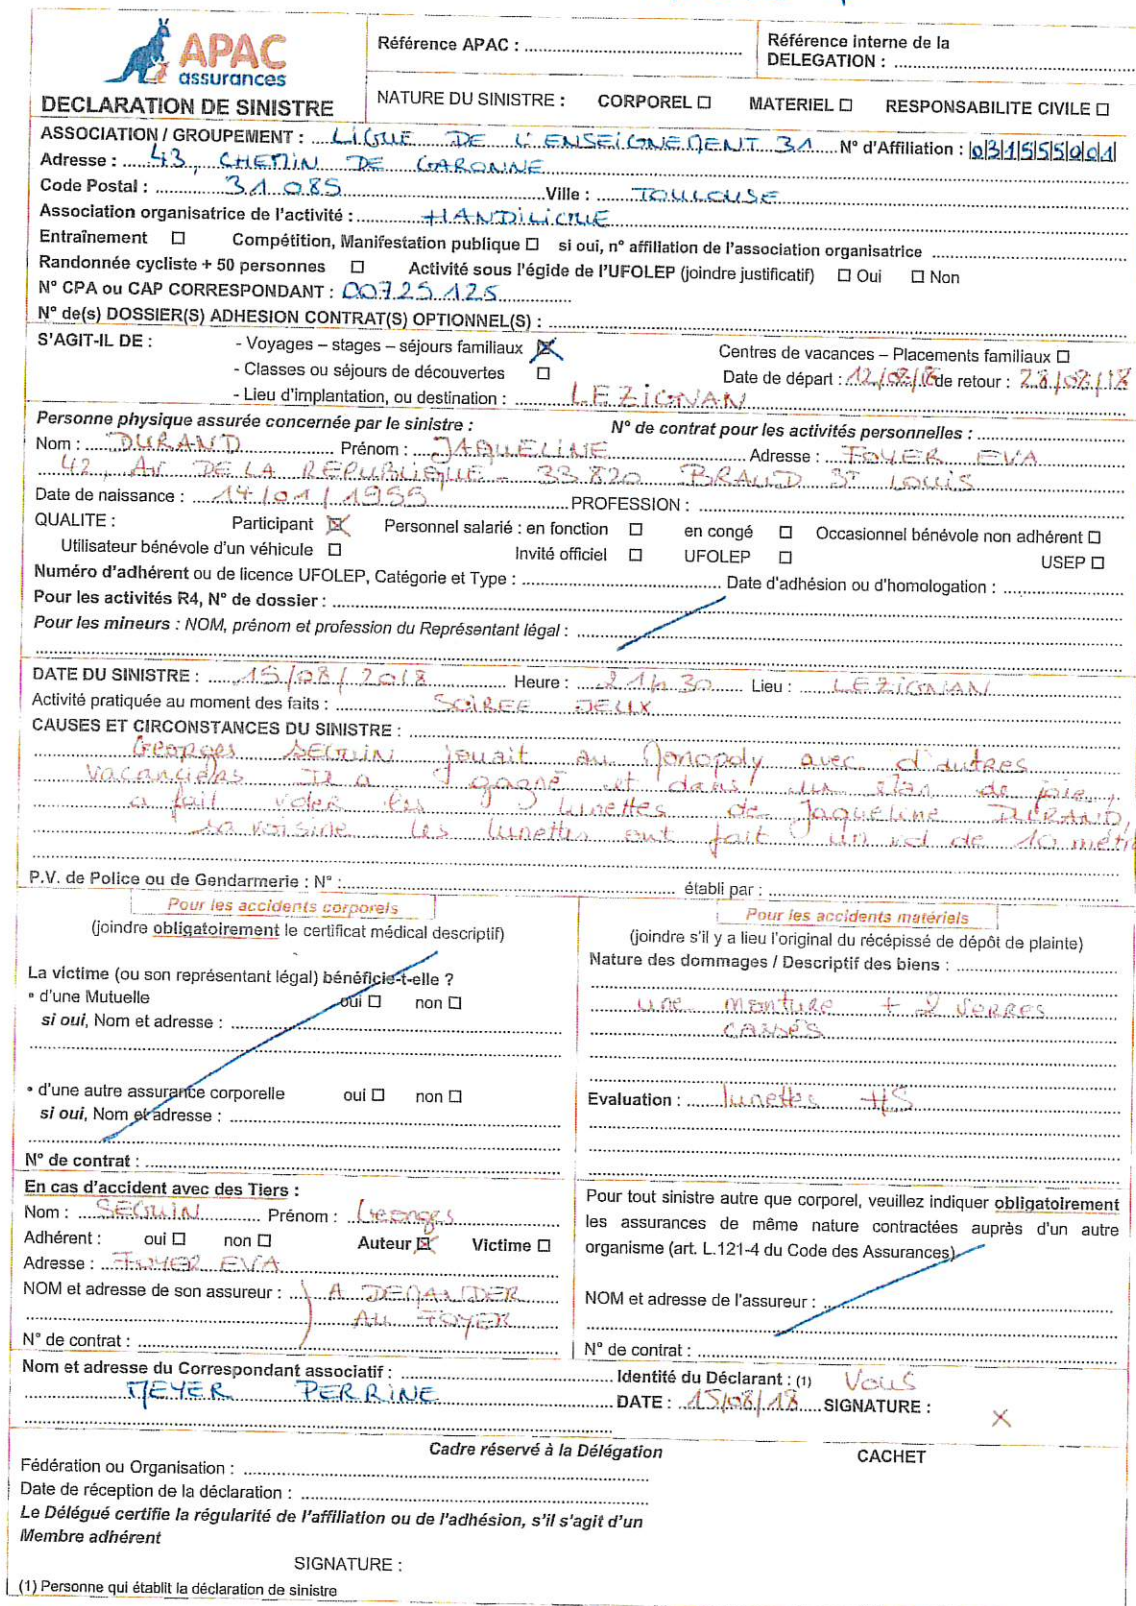 APAC
assurances
DECLARATION DE SINISTRE
Référence APAC : 
Référence interne de la
DELEGATION :
NATURE DU SINISTRE : CORPOREL ☐ MATERIEL ☐ RESPONSABILITE CIVILE ☐
ASSOCIATION / GROUPEMENT : LIGUE DE L'ENSEIGNEMENT 31 N° d'Affiliation : 031555001
Adresse : 43, CHEMIN DE GARONNE
Code Postal : 31 085 Ville : TOULOUSE
Association organisatrice de l'activité : HANDILIGUE
Entraînement ☐ Compétition, Manifestation publique ☐ si oui, n° affiliation de l'association organisatrice
Randonnée cycliste + 50 personnes ☐ Activité sous l'égide de l'UFOLEP (joindre justificatif) ☐ Oui ☐ Non
N° CPA ou CAP CORRESPONDANT : 00725125
N° de(s) DOSSIER(S) ADHESION CONTRAT(S) OPTIONNEL(S) :
S'AGIT-IL DE : - Voyages – stages – séjours familiaux ☒ Centres de vacances – Placements familiaux ☐
- Classes ou séjours de découvertes ☐ Date de départ : 12/08/18 de retour : 28/08/18
- Lieu d'implantation, ou destination : LEZIGNAN
Personne physique assurée concernée par le sinistre : N° de contrat pour les activités personnelles :
Nom : DURAND Prénom : JAQUELINE Adresse : FOYER EVA
42, AV DE LA REPUBLIQUE - 33 820 BRAUD ST LOUIS
Date de naissance : 14/01/1955 PROFESSION :
QUALITE : Participant ☒ Personnel salarié : en fonction ☐ en congé ☐ Occasionnel bénévole non adhérent ☐
Utilisateur bénévole d'un véhicule ☐ Invité officiel ☐ UFOLEP ☐ USEP ☐
Numéro d'adhérent ou de licence UFOLEP, Catégorie et Type : Date d'adhésion ou d'homologation :
Pour les activités R4, N° de dossier :
Pour les mineurs : NOM, prénom et profession du Représentant légal :
DATE DU SINISTRE : 15/08/2018 Heure : 21h30 Lieu : LEZIGNAN
Activité pratiquée au moment des faits : SOIREE JEUX
CAUSES ET CIRCONSTANCES DU SINISTRE :
Georges SEGUIN jouait au Monopoly avec d'autres
vacanciers Il a gagné et dans un élan de joie,
a fait voler les lunettes de Jaqueline DURAND,
sa voisine les lunettes ont fait un vol de 10 mètre
P.V. de Police ou de Gendarmerie : N° : établi par :
Pour les accidents corporels
(joindre obligatoirement le certificat médical descriptif)
La victime (ou son représentant légal) bénéficie-t-elle ?
• d'une Mutuelle oui ☐ non ☐
si oui, Nom et adresse :
• d'une autre assurance corporelle oui ☐ non ☐
si oui, Nom et adresse :
N° de contrat :
Pour les accidents matériels
(joindre s'il y a lieu l'original du récépissé de dépôt de plainte)
Nature des dommages / Descriptif des biens :
une monture + 2 VERRES
CASSÉS
Evaluation : lunettes HS
En cas d'accident avec des Tiers :
Nom : SEGUIN Prénom : Georges
Adhérent : oui ☐ non ☐ Auteur ☒ Victime ☐
Adresse : FOYER EVA
NOM et adresse de son assureur : A DEMANDER
AU FOYER
N° de contrat :
Pour tout sinistre autre que corporel, veuillez indiquer obligatoirement
les assurances de même nature contractées auprès d'un autre
organisme (art. L.121-4 du Code des Assurances)
NOM et adresse de l'assureur :
N° de contrat :
Nom et adresse du Correspondant associatif : Identité du Déclarant : (1) Vous
MEYER PERRINE DATE : 15/08/18 SIGNATURE : X
Cadre réservé à la Délégation CACHET
Fédération ou Organisation :
Date de réception de la déclaration :
Le Délégué certifie la régularité de l'affiliation ou de l'adhésion, s'il s'agit d'un
Membre adhérent
SIGNATURE :
(1) Personne qui établit la déclaration de sinistre